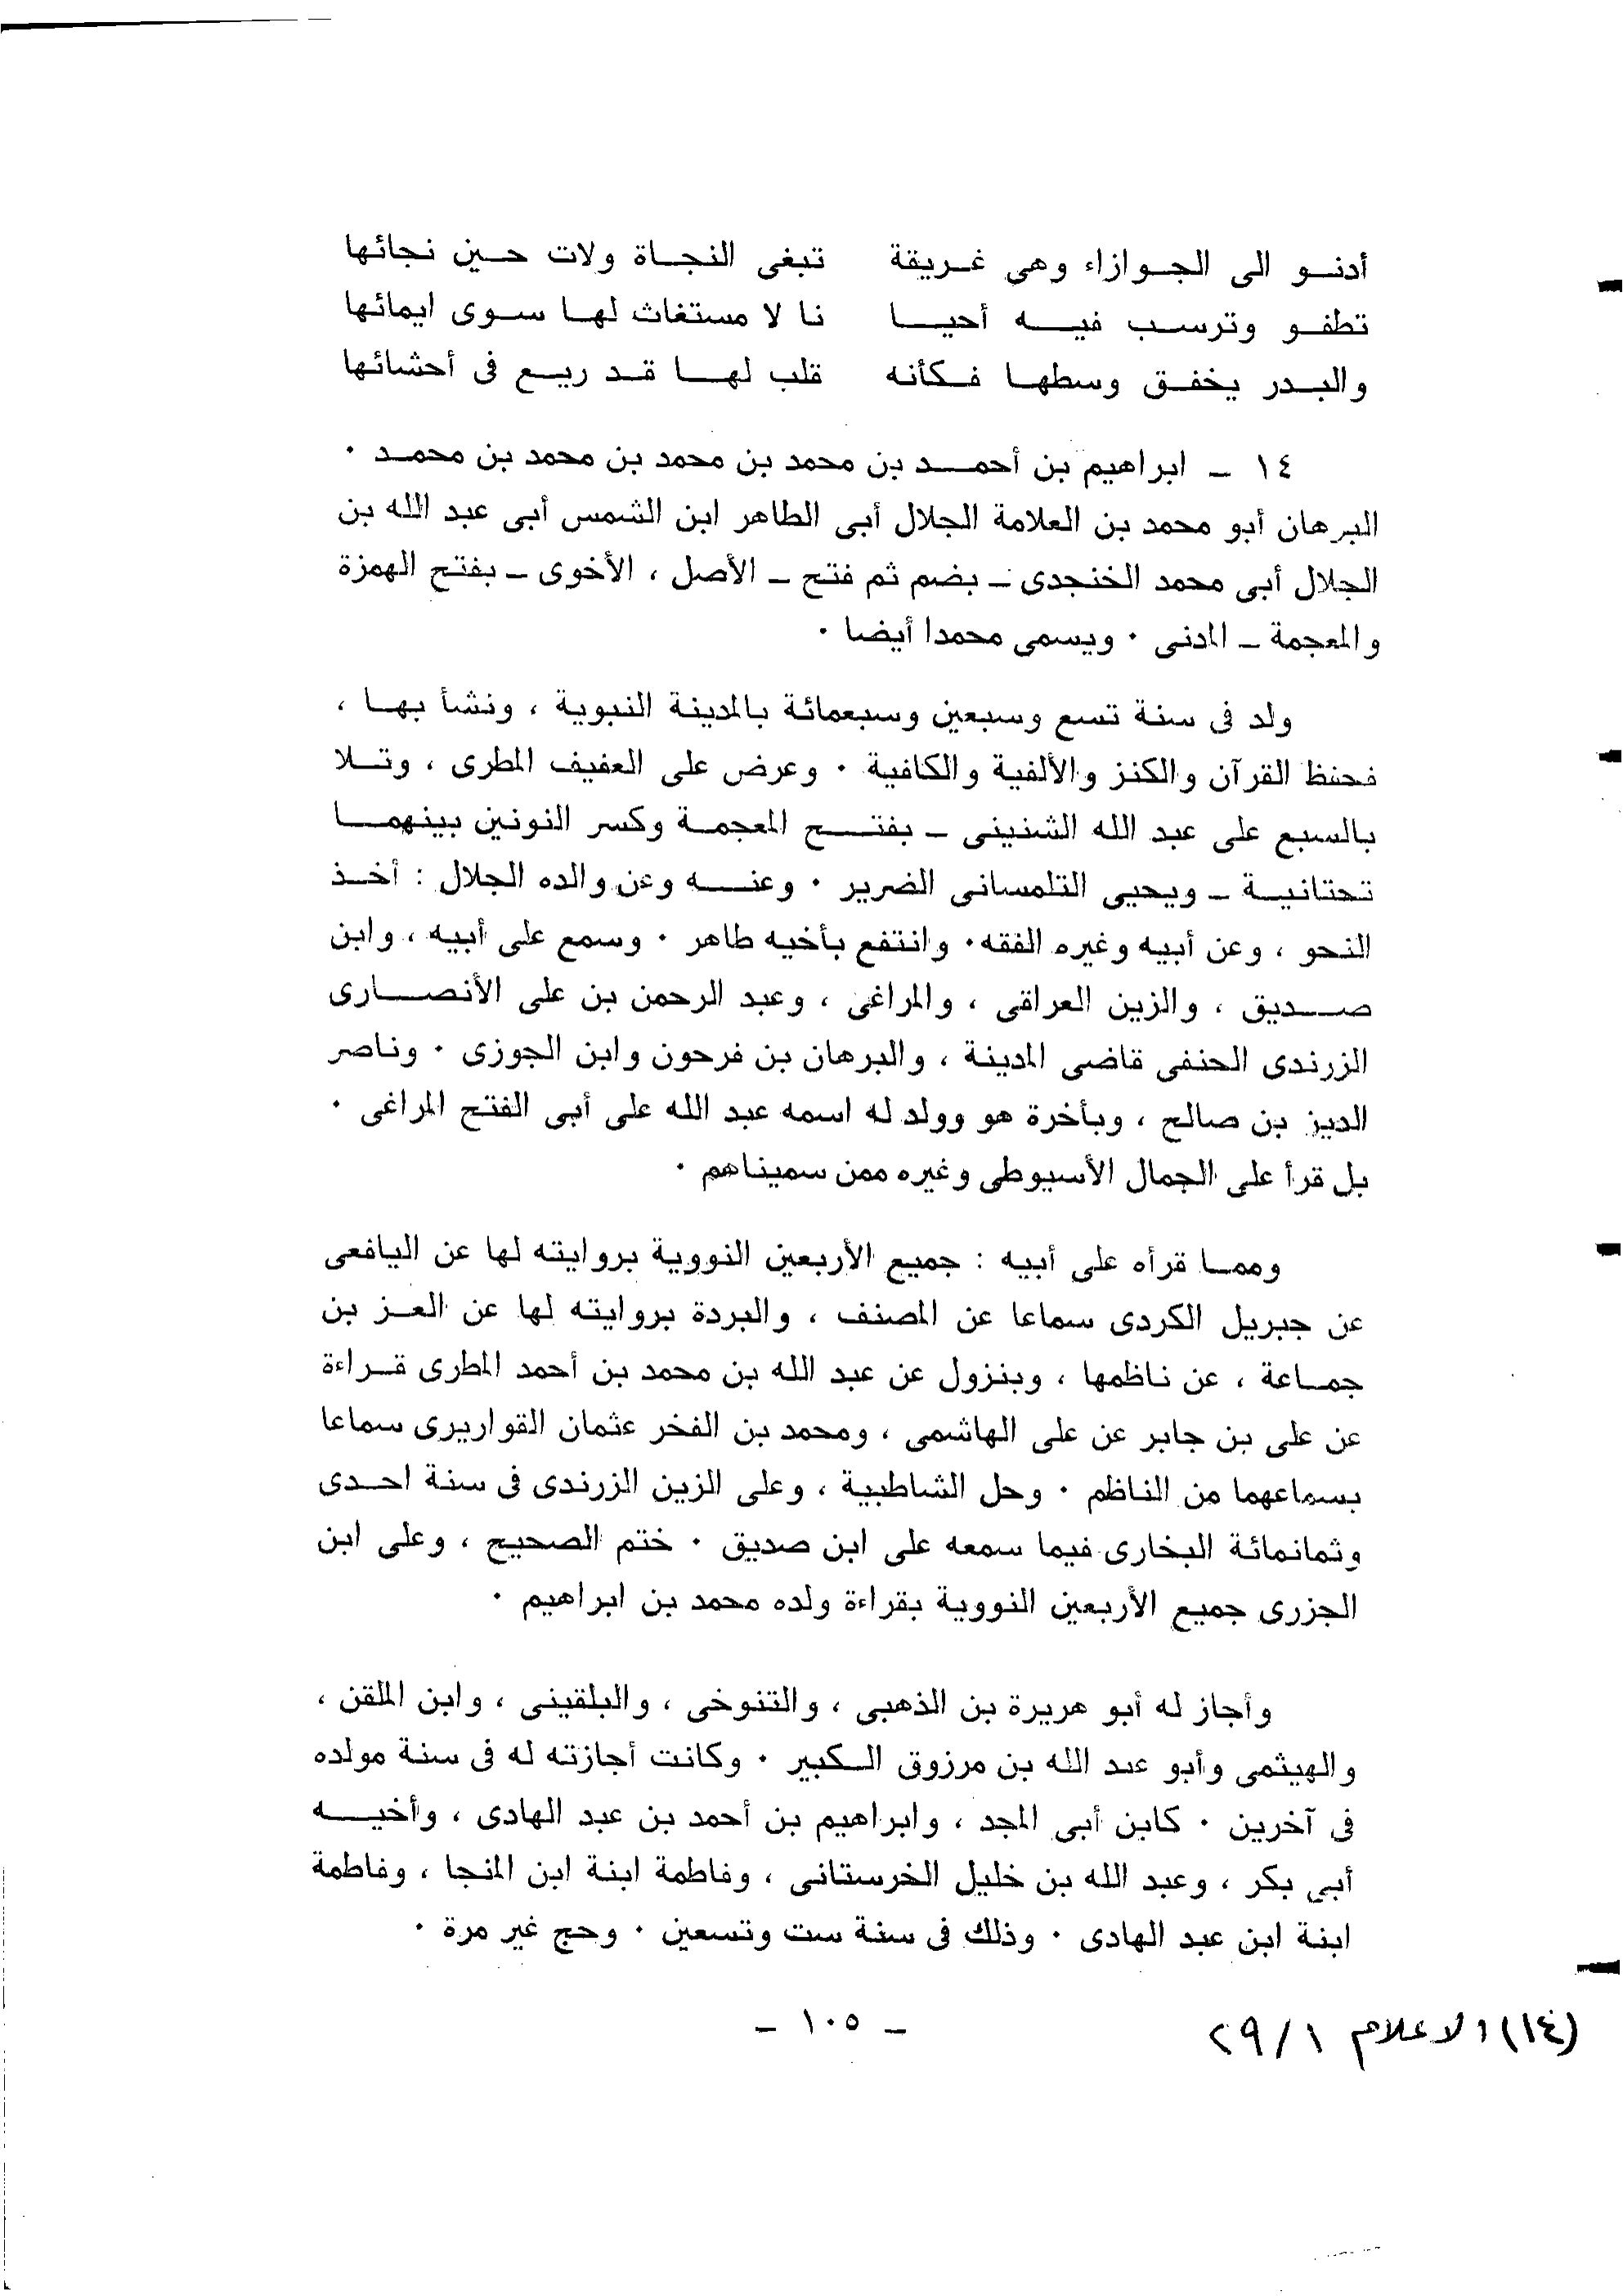 أدنو الى الجوازاء وهى غريقة تبغى النجاة ولات حين نجائها
تطفو وترسب فيه أحيا نا لا مستغاث لها سوى ايمائها
والبدر يخفق وسطها فكأنه قلب لها قد ريع فى أحشائها
١٤ ـ ابراهيم بن أحمد بن محمد بن محمد بن محمد بن محمد ٠
البرهان أبو محمد بن العلامة الجلال أبى الطاهر ابن الشمس أبى عبد الله بن
الجلال أبى محمد الخنجدى ـ بضم ثم فتح ـ الأصل ، الأخوى ـ بفتح الهمزة
والمعجمة ـ المدنى ٠ ويسمى محمدا أيضا ٠
ولد فى سنة تسع وسبعين وسبعمائة بالمدينة النبوية ، ونشأ بها ،
فحفظ القرآن والكنز والألفية والكافية ٠ وعرض على العفيف المطرى ، وتلا
بالسبع على عبد الله الشنينى ـ بفتح المعجمة وكسر النونين بينهما
تحتانية ـ ويحيى التلمسانى الضرير ٠ وعنه وعن والده الجلال : أخذ
النحو ، وعن أبيه وغيره الفقه ٠ وانتفع بأخيه طاهر ٠ وسمع على أبيه ، وابن
صديق ، والزين العراقى ، والمراغى ، وعبد الرحمن بن على الأنصارى
الزرندى الحنفى قاضى المدينة ، والبرهان بن فرحون وابن الجوزى ٠ وناصر
الديز بن صالح ، وبأخرة هو وولد له اسمه عبد الله على أبى الفتح المراغى ٠
بل قرأ على الجمال الأسيوطى وغيره ممن سميناهم ٠
ومما قرأه على أبيه : جميع الأربعين النووية بروايته لها عن اليافعى
عن جبريل الكردى سماعا عن المصنف ، والبردة بروايته لها عن العز بن
جماعة ، عن ناظمها ، وبنزول عن عبد الله بن محمد بن أحمد المطرى قراءة
عن على بن جابر عن على الهاشمى ، ومحمد بن الفخر عثمان القواريرى سماعا
بسماعهما من الناظم ٠ وحل الشاطبية ، وعلى الزين الزرندى فى سنة احدى
وثمانمائة البخارى فيما سمعه على ابن صديق ٠ ختم الصحيح ، وعلى ابن
الجزرى جميع الأربعين النووية بقراءة ولده محمد بن ابراهيم ٠
وأجاز له أبو هريرة بن الذهبى ، والتنوخى ، والبلقينى ، وابن الملقن ،
والهيثمى وأبو عبد الله بن مرزوق الكبير ٠ وكانت أجازته له فى سنة مولده
فى آخرين ٠ كابن أبى المجد ، وابراهيم بن أحمد بن عبد الهادى ، وأخيه
أبى بكر ، وعبد الله بن خليل الخرستانى ، وفاطمة ابنة ابن المنجا ، وفاطمة
ابنة ابن عبد الهادى ٠ وذلك فى سنة ست وتسعين ٠ وحج غير مرة ٠
ـ ١٠٥ ـ
(١٤) الاعلام ٢٩/١